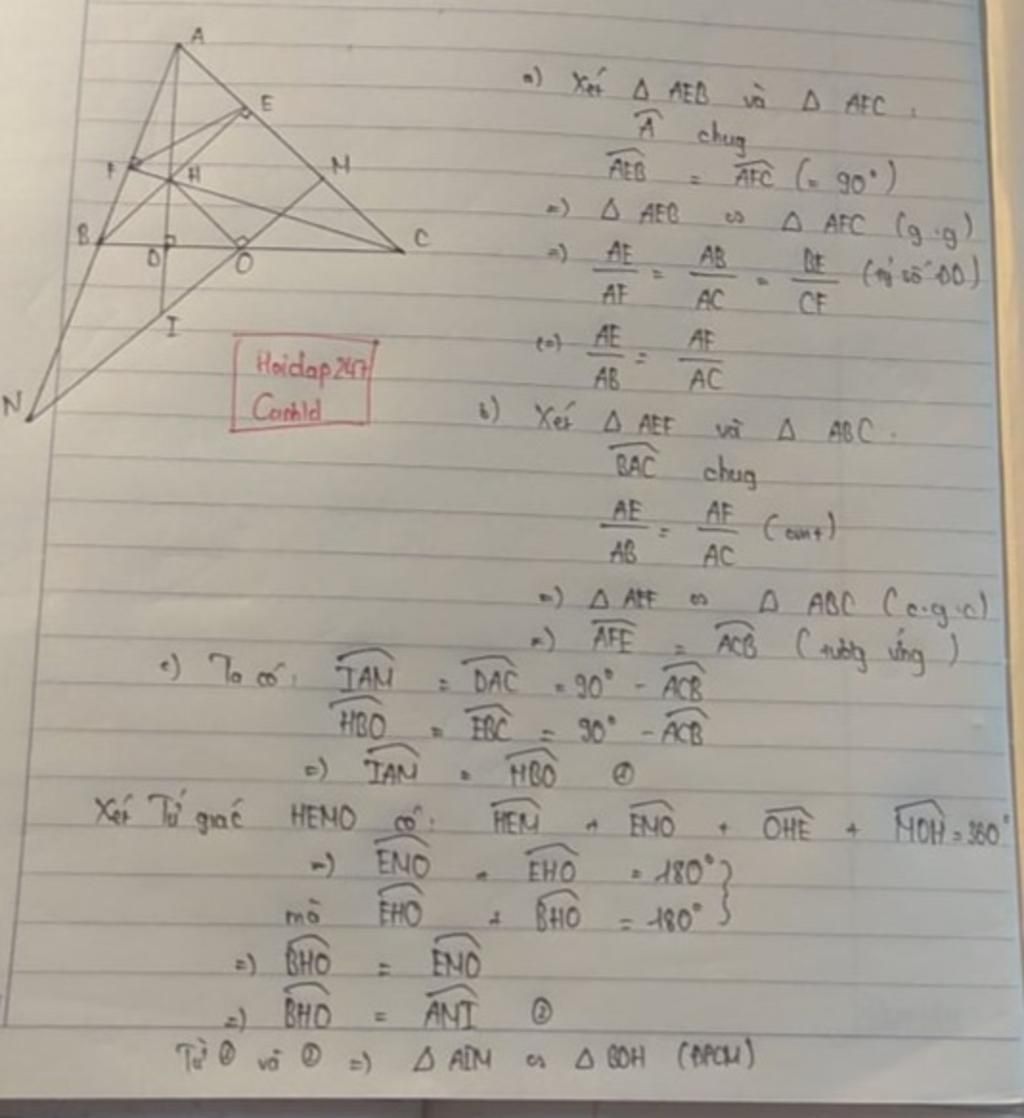 A
E
F
H
M
B
D
O
C
I
N
Hoidap247
Canhld
a) Xét Δ AEB và Δ AFC .
Â chug
AEB = AFC (= 90°)
=> Δ AEB ∽ Δ AFC (g.g)
=> AE/AF = AB/AC = BE/CF (tỷ số ĐD)
(=) AE/AB = AF/AC
b) Xét Δ AEF và Δ ABC .
BAC chug
AE/AB = AF/AC (cmt)
=> Δ AEF ∽ Δ ABC (c.g.c)
=> AFE = ACB (tương ứng)
c) Ta có: IAM = DAC = 90° - ACB
HBO = EBC = 90° - ACB
=> IAM = HBO ①
Xét Tứ giác HEMO có: HEM + EMO + OHE + MOH = 360°
=> EMO + EHO = 180°
mà EHO + BHO = 180°
=> BHO = EMO
=> BHO = AMI ②
Từ ① và ② => Δ AIM ∽ Δ BOH (ĐPCM)